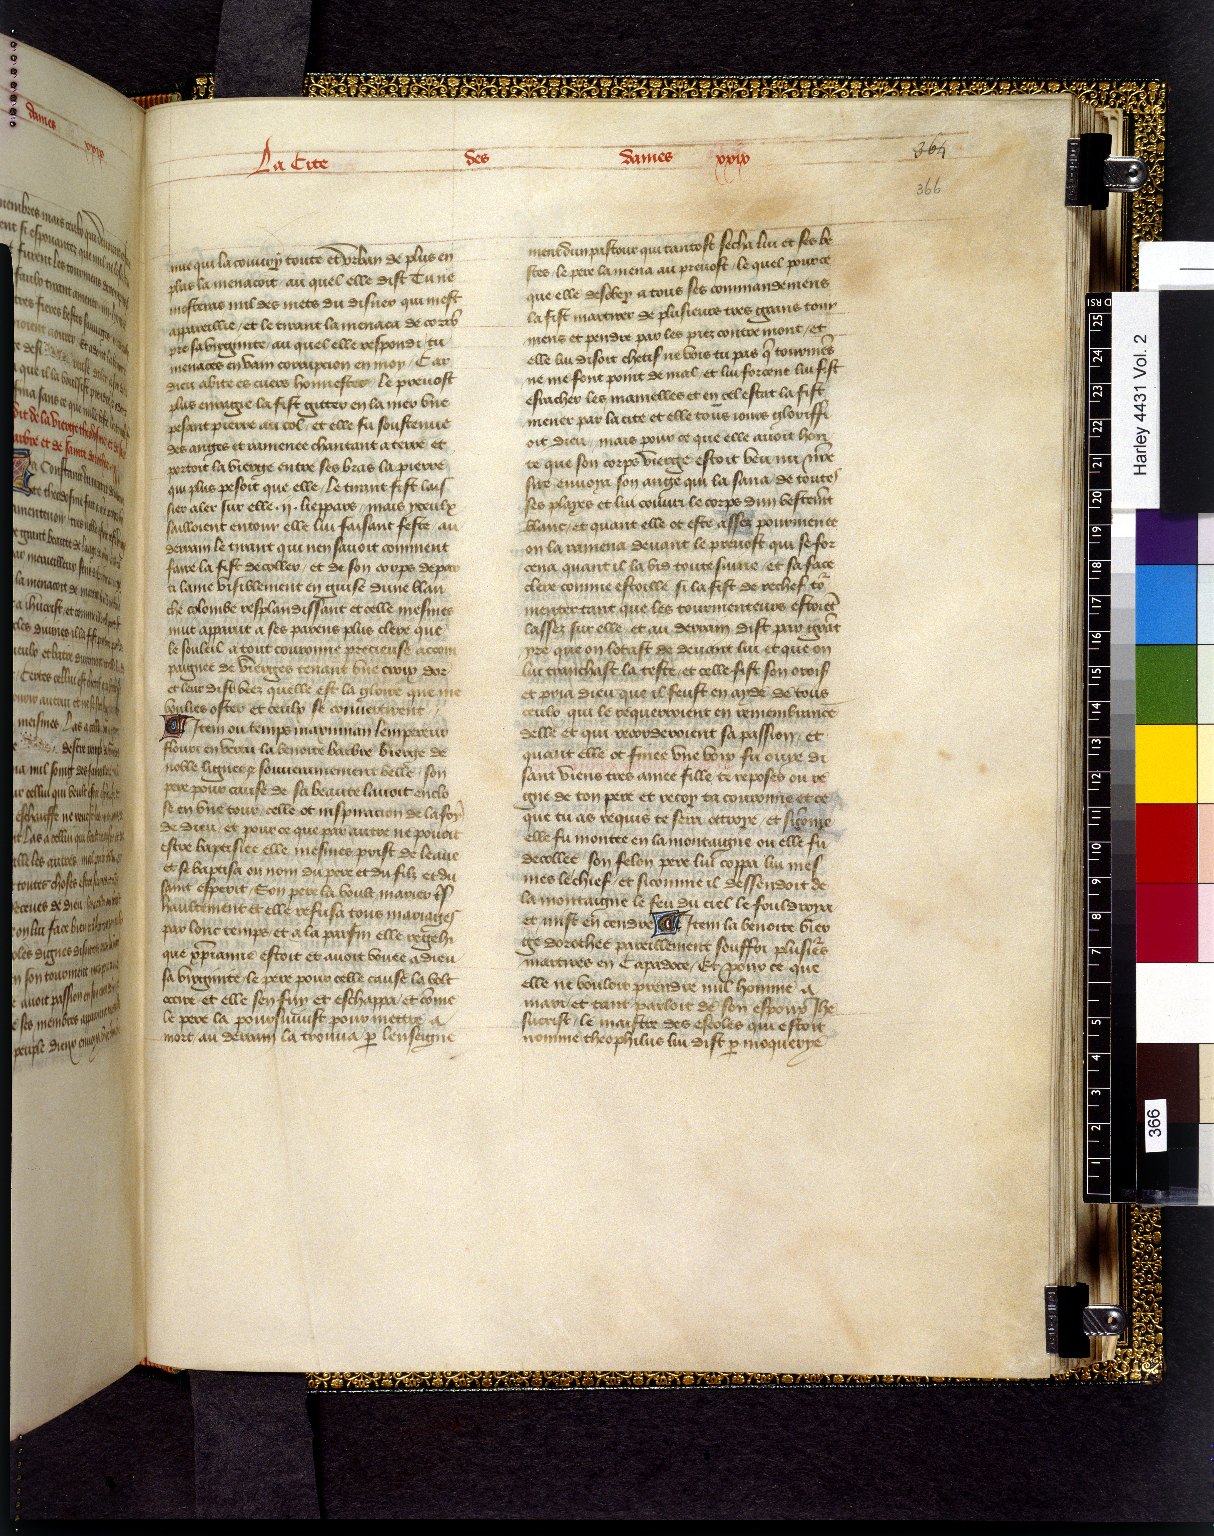 La Cite des dames xxix
364
366
mie qui la couury toute et vrban de plus en
plus la menacoit / au quel elle dist Tu ne
mosteras mil des mets du disner qui mest
appareillie / et le tirant la menaca de corro
pre sa virginite / au quel elle respondi / tu
menaces en vain corrupcion en moy / Car
dieu abite es cuers honnestes / Le preuost
plus enragie la fist gitter en la mer vne
pesant pierre au col / et elle fu soustenue
des anges et ramenee chantant a terre et
portoit la vierge entre ses bras la pierre
qui plus pesoit que elle / Le tirant fist lais
sier aler sur elle .ij. lieppars / mais yceulx
sailloient entour elle lui faisant feste / au
derrain le tirant qui nen sauoit comment
faire la fist decoller / et de son corps depar
ti lame visiblement en guise dune blan
che colombe resplandissant et celle mesmes
nuit apparut a ses parens plus clere que
le souleil a tout couronne precieuse accom
paignee de vierges tenant vne croix dor
et leur dist veez quelle est la gloire que me
voulies oster et ceulx se conuertirent
Item ou temps maximian lempereur
flouri en vertu la benoite barbre vierge de
noble lignee souuerainement belle / son
pere pour cause de sa beaute lauoit enclo
se en vne tour / celle ot inspiracion de la foy
de dieu / et pour ce que par autre ne pouoit
estre baptisiee elle mesmes prist de leaue
et se baptisa ou nom du pere et du filz et du
saint esperit / Son pere la voult marier tres
haultement et elle refusa tous mariages
par lonc temps et a la parfin elle regehi
que xpianne estoit et auoit vouee a dieu
sa virginite / le pere pour celle cause la volt
occire et elle sen fuy et eschappa / et come
le pere la poursuiuist pour mettre a
mort au derrain la trouua p lenseigne
ment dun pastour qui tantost secha lui et ses be
stes / le pere la mena au preuost / le quel pource
que elle desobey a tous ses commandemens
la fist martirer de plusieurs tres grans tour
mens et pendre par les piez contre mont / et
elle lui disoit chetif ne vois tu pas q tourmens
ne me font point de mal / et lui forcene lui fist
esracher les mamelles et en cel estat la fist
mener par la cite et elle tous iours gloriffi
oit dieu / mais pour ce que elle auoit hon
te que son corps vierge estoit veu nu nre
sire enuoya son ange qui la sana de toutes
ses playes et lui couuri le corps dun vestemt
blanc / et quant elle ot este assez pourmenee
on la ramena deuant le preuost qui se for
cena quant il la vid toute sainne / et sa face
clere comme estoille / si la fist de rechef tor
menter tant que les tourmenteurs estoient
lassez sur elle / et au derrain dist par grant
yre que on lostast de deuant lui et que on
lui tranchast la teste / et celle fist son orois
et pria dieu que il feust en ayde de tous
ceulx qui le requerroient en remembrance
delle et qui recorderoient sa passion / et
quant elle ot finee vne voix fu ouye di
sant viens tres amee fille te reposes ou re
gne de ton pere et recoy ta couronne et ce
que tu as requis te sera ottroye / et sicome
elle fu montee en la montaigne ou elle fu
decollee son felon pere lui coppa lui mes
mes le chief / et sicomme il dessendoit de
la montaigne le feu du ciel le fouldroya
et mist en cendre Item la benoite vier
ge dorothee pareillement souffri plusieurs
martires en Capadoce / Et pour ce que
elle ne vouloit prendre nul homme a
mari et tant parloit de son espoux Jhe
sucrist / le maistre des escoles qui estoit
nomme theophilus lui dist p moquerye
Harley 4431 Vol. 2
366